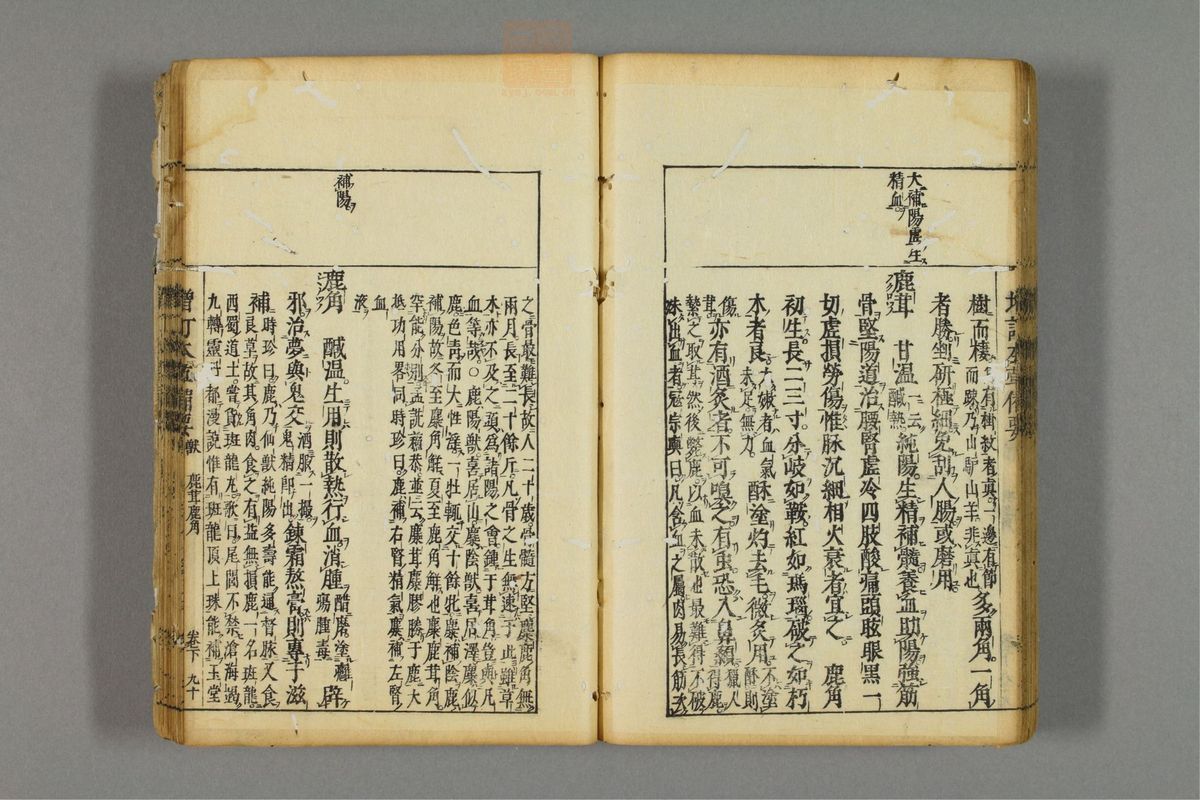 大補陽虛生
精血
樹而棲有樹紋者真一邊有節
而疎乃山驢山羊非真也多兩角一角
者勝剉研極細免刮人腸或磨用
鹿茸 甘溫一云鹹熱純陽生精補髓養血助陽強筋
骨堅陽道治腰腎虛冷四肢酸痛頭眩眼黑一
切虛損勞傷惟脉沉細相火衰者宜之 鹿角
初生長二三寸分岐如鞍紅如瑪瑙破之如朽
木者良太嫩者血氣未足無力酥塗灼去毛微炙用不塗酥則
傷茸亦有酒炙者不可嗅之有虫恐入鼻顙獵人得鹿
縶之取茸然後斃鹿以血未散也最難得不破
未出血者宗奭曰凡含血之屬肉易長筋次
之骨最難長故人二十歲骨髓方堅麋鹿角無
兩月長至二十餘斤凡骨之生無速于此雖草
木亦不及之頭為諸陽之會鍾于茸角豈與凡
血等哉○鹿陽獸喜居山麋陰獸喜居澤麋似
鹿色青而大性淫一牡輒交十餘牝麋補陰鹿
補陽故冬至麋角觧夏至鹿角觧也麋鹿茸角
罕能分別孟詵蘇恭並云麋茸麋膠勝于鹿大
抵功用畧同時珍曰鹿補右腎精氣麋補左腎
血
液
補陽
鹿角 鹹溫生用則散熱行血消腫醋磨塗癰瘍腫毒辟
邪治夢與鬼交酒服一撮鬼精即出鍊霜熬膏則專于滋
補時珍曰鹿乃仙獸純陽多壽能通督脉又食
良草故其角肉食之有益無損鹿一名班龍
西蜀道士嘗貨班龍丸歌曰尾閭不禁滄海竭
九轉靈丹都漫說惟有班龍頂上珠能補玉堂
增訂本草備要 獸 鹿茸鹿角 卷下 九十